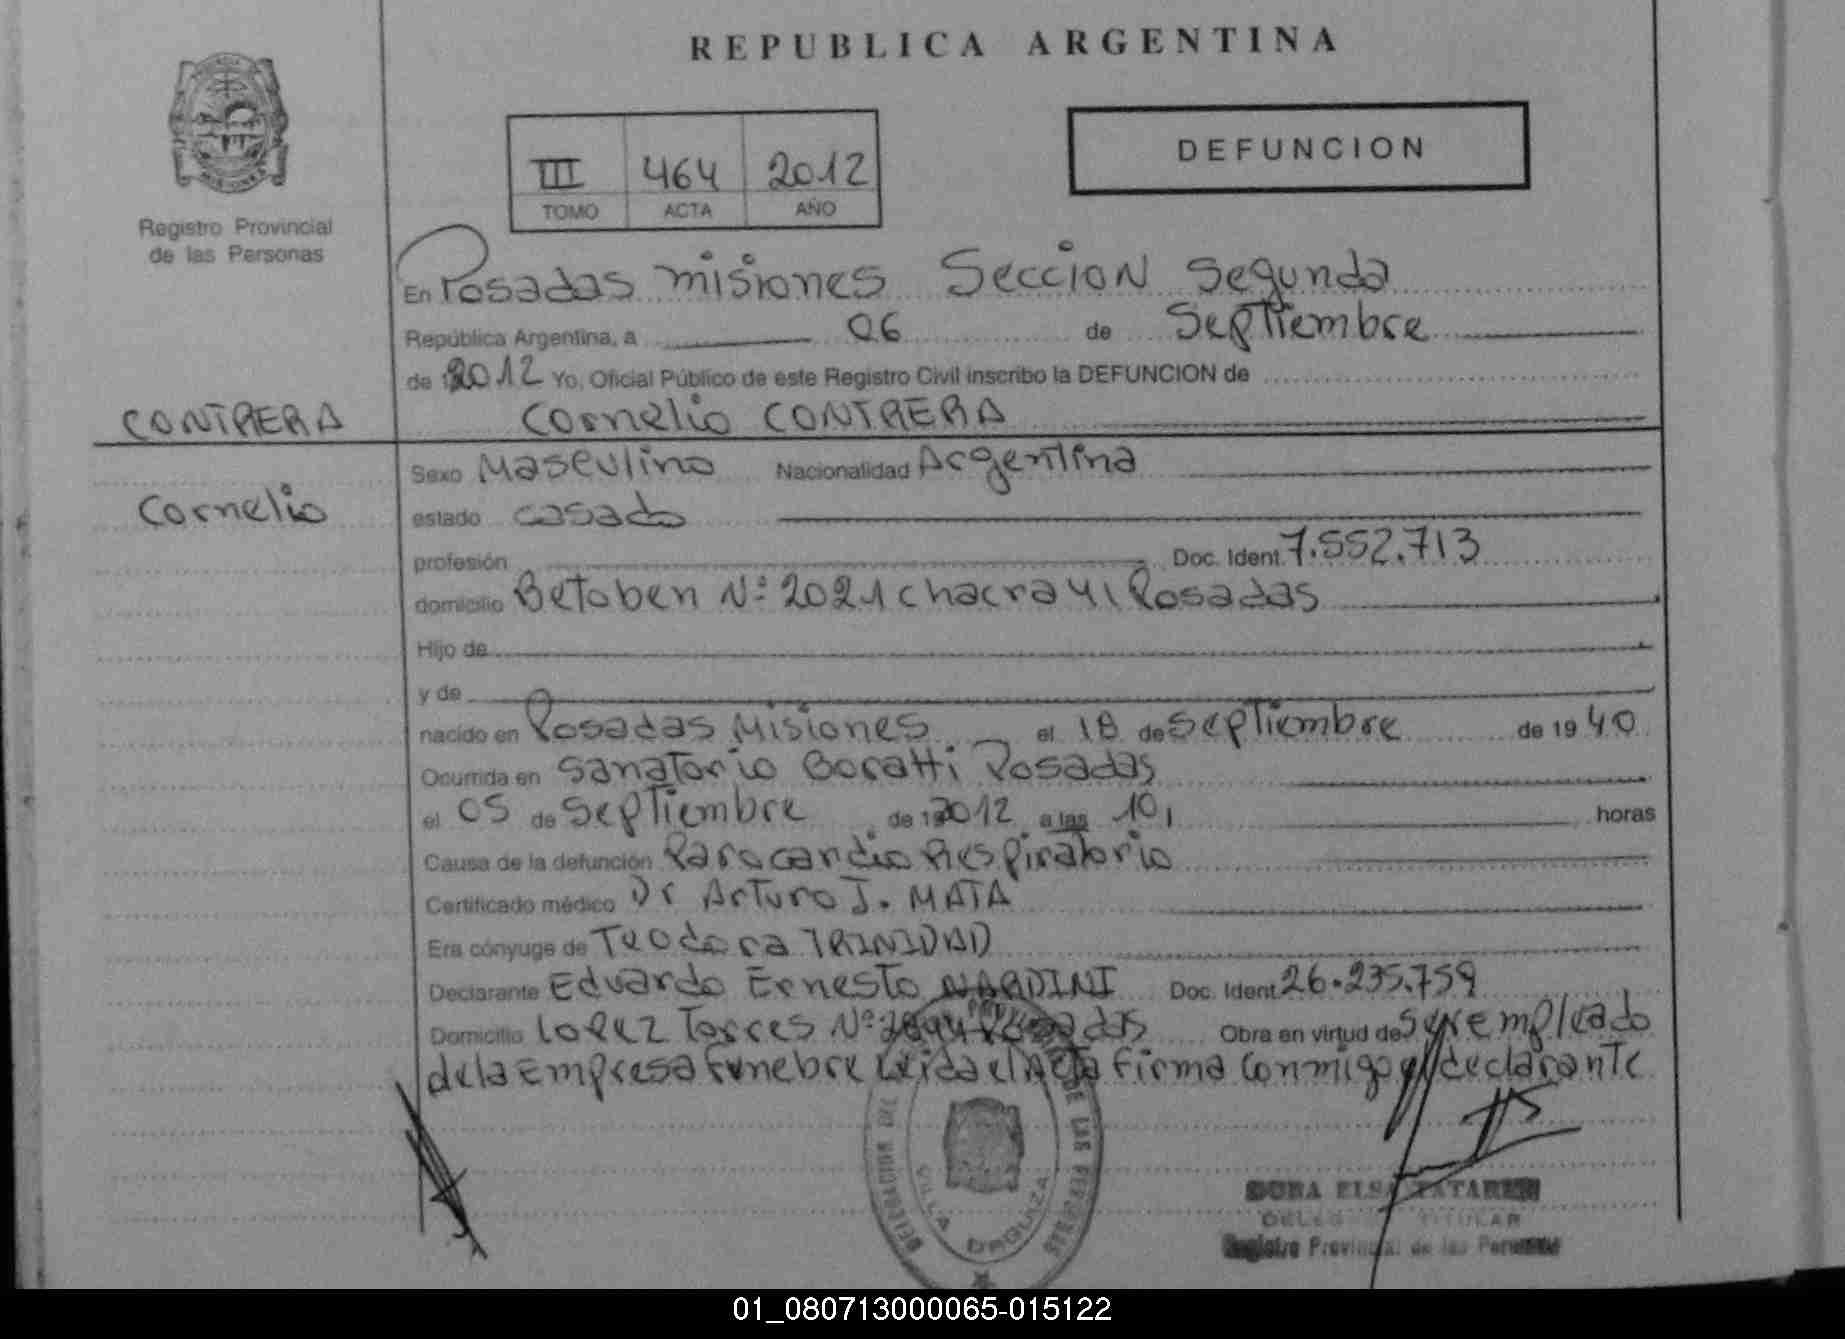 REPUBLICA ARGENTINA
III 464 2012
TOMO ACTA AÑO
DEFUNCION
Registro Provincial
de las Personas
En Posadas misiones Seccion Segunda
República Argentina, a 06 de Septiembre
de 2012 Yo, Oficial Público de este Registro Civil inscribo la DEFUNCION de
CONTRERA
Cornelio CONTRERA
Cornelio
Sexo Masculino Nacionalidad Argentina
estado casado
profesión Doc. Ident. 7.552.713
domicilio Betoben Nº 2021 chacra 41 Posadas
Hijo de
y de
nacido en Posadas Misiones el 18 de Septiembre de 1940
Ocurrida en Sanatorio Boratti Posadas
el 05 de Septiembre de 2012 a las 10, horas
Causa de la defunción Parocardio Respiratorio
Certificado médico Dr Arturo J. MATA
Era cónyuge de Teodora TRINIDAD
Declarante Eduardo Ernesto NARDINI Doc. Ident 26.235.759
Domicilio Lopez Torres Nº Posadas Obra en virtud de ser empleado
de la Empresa Funebre Leida el Acta Firma Conmigo el declarante
DELEGACION DEL DE LAS PERSONAS
VILLA URQUIZA
ELSA
TITULAR
Registro Provincial de las Personas
01_080713000065-015122